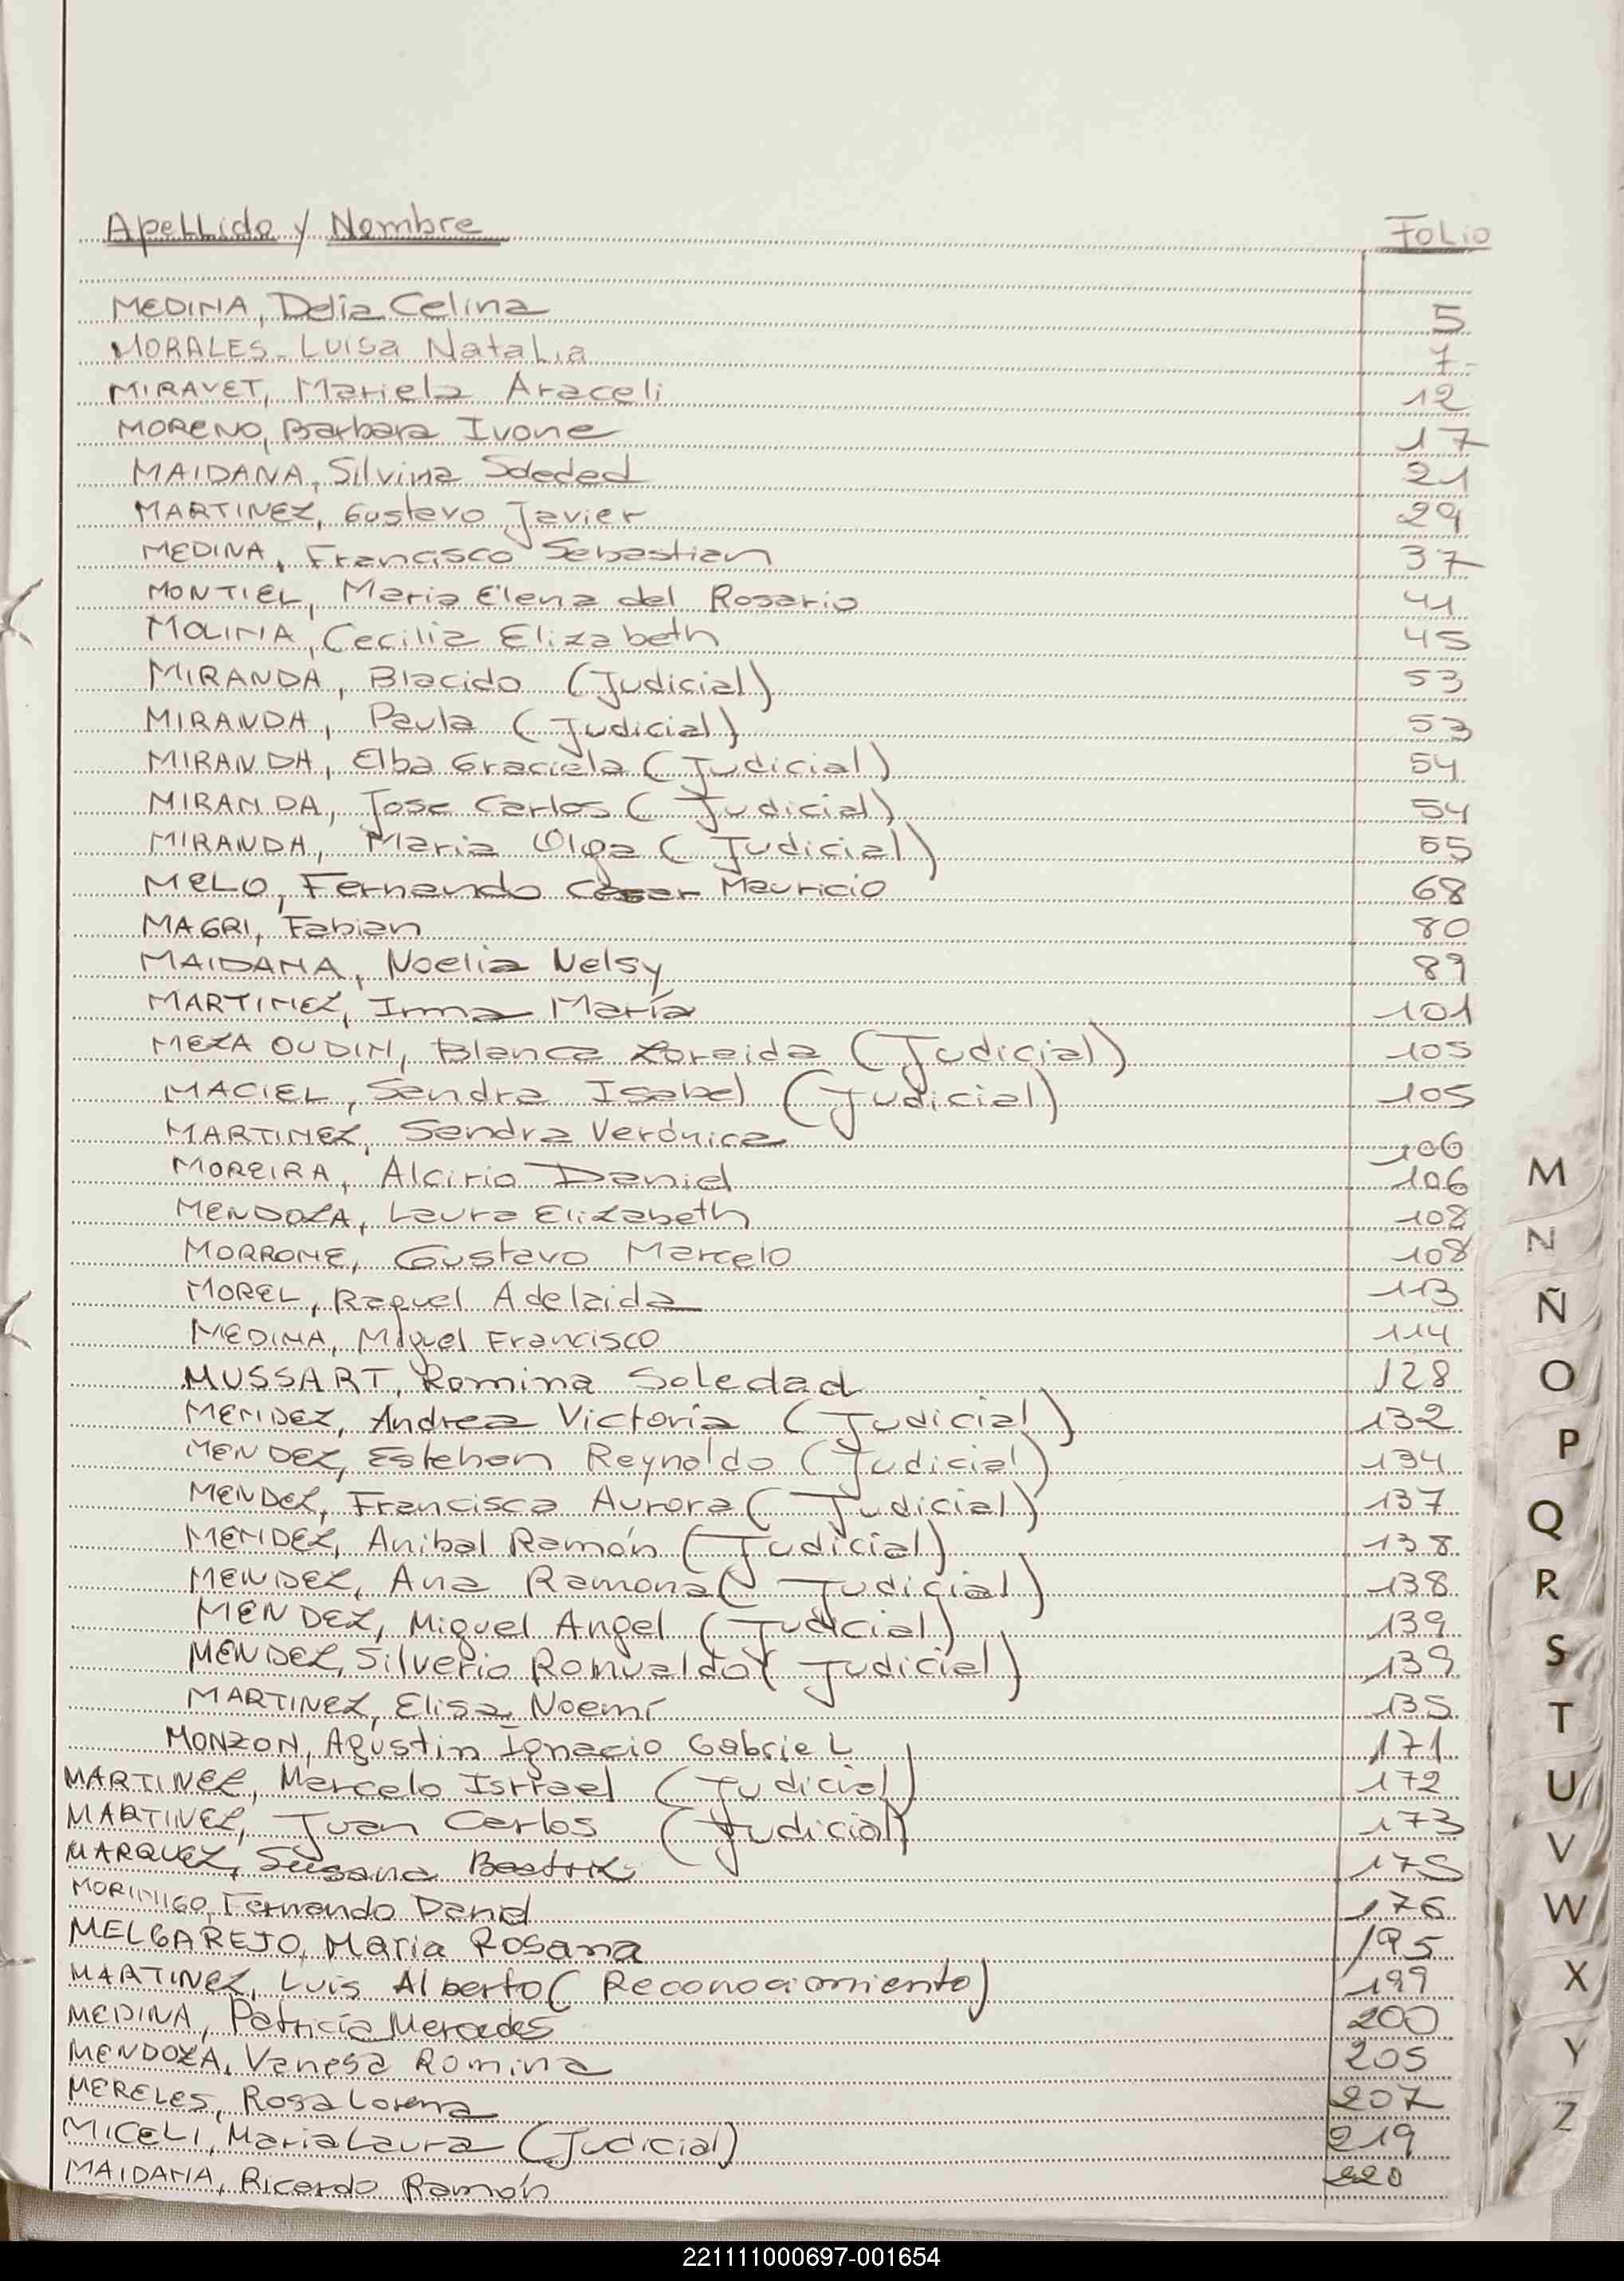 Apellido y Nombre Folio
MEDINA, Delia Celina 5
MORALES - Luisa Natalia 7-
MIRAVET, Mariela Araceli 12
MORENO, Barbara Ivone 17
MAIDANA, Silvina Soledad 21
MARTINEZ, Gustavo Javier 29
MEDINA, Francisco Sebastian 37
MONTIEL, Maria Elena del Rosario 41
MOLINA, Cecilia Elizabeth 45
MIRANDA, Blacido (Judicial) 53
MIRANDA, Paula (Judicial) 53
MIRANDA, Elba Graciela (Judicial) 54
MIRANDA, Jose Carlos (Judicial) 54
MIRANDA, Maria Olga (Judicial) 55
MELO, Fernando Cesar Mauricio 68
MAGRI, Fabian 80
MAIDANA, Noelia Nelsy 89
MARTINEZ, Irma María 101
MEZA OUDIN, Blanca Zoraida (Judicial) 105
MACIEL, Sandra Isabel (Judicial) 105
MARTINEZ, Sandra Verónica 106
MOREIRA, Alcirio Daniel 106
MENDOZA, Laura Elizabeth 108
MORRONE, Gustavo Marcelo 108
MOREL, Raquel Adelaida 113
MEDINA, Miguel Francisco 114
MUSSART, Romina Soledad 128
MENDEZ, Andrea Victoria (Judicial) 132
MENDEZ, Esteban Reynaldo (Judicial) 134
MENDEZ, Francisca Aurora (Judicial) 137
MENDEZ, Anibal Ramón (Judicial) 138
MENDEZ, Ana Ramona (Judicial) 138
MENDEZ, Miguel Angel (Judicial) 139
MENDEZ, Silverio Romualdo (Judicial) 139
MARTINEZ, Elisa Noemí 135
MONZON, Agustin Ignacio Gabriel 171
MARTINEZ, Marcelo Isrrael (Judicial) 172
MARTINEZ, Juan Carlos (Judicial) 173
MARQUEZ, Susana Beatriz 175
MORINIGO, Fernando Daniel 176
MELGAREJO, Maria Rosana 195
MARTINEZ, Luis Alberto (Reconocimiento) 199
MEDINA, Patricia Mercedes 200
MENDOZA, Vanesa Romina 205
MERELES, Rosa Lorena 207
MICELI, Maria Laura (Judicial) 219
MAIDANA, Ricardo Ramón 220
M
N
Ñ
O
P
Q
R
S
T
U
V
W
X
Y
Z
221111000697-001654